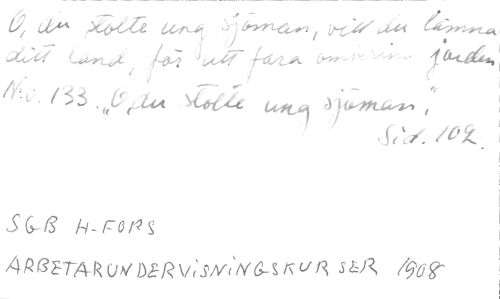 O, du stolte ung sjöman, vill du lämna
ditt land, för att fara omkring jorden
No. 133. „O, du stolte ung sjöman."
Sid. 102.
SGB H-FORS
ARBETARUNDERVISNINGSKURSER 1908